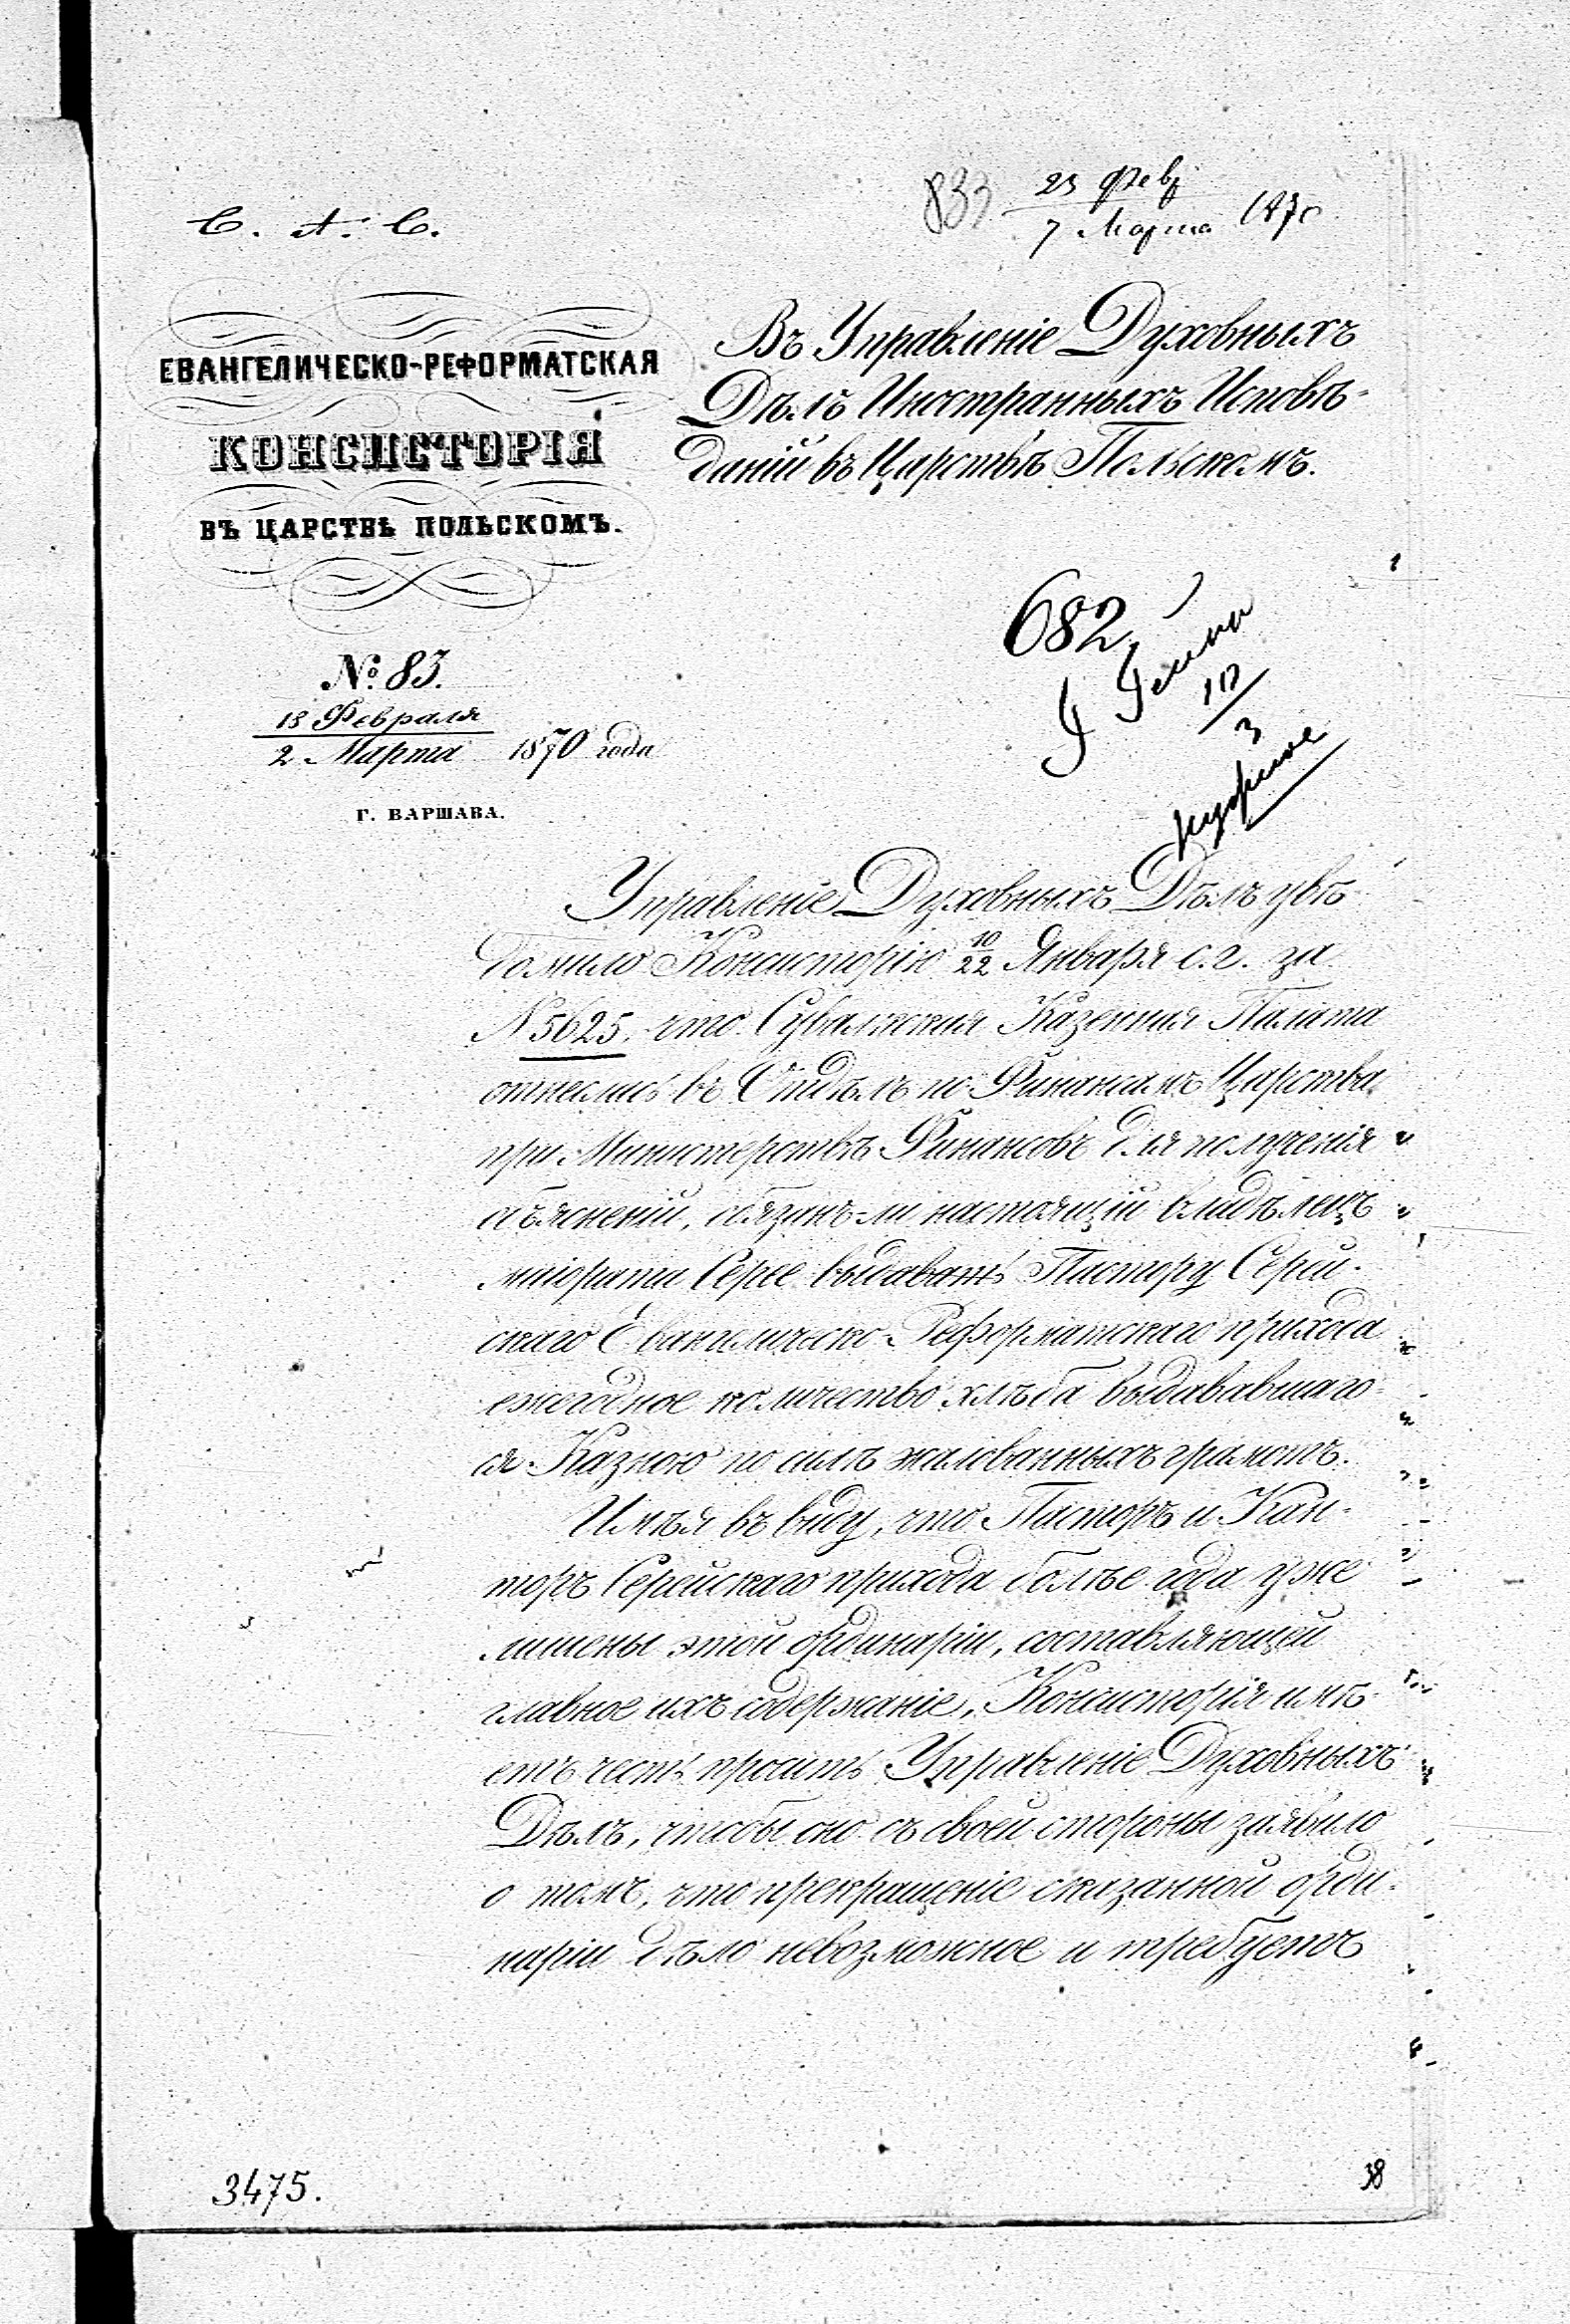 833 23 Февр
7 Марта 1870
С. А. С.
ЕВАНГЕЛИЧЕСКО-РЕФОРМАТСКАЯ
КОНСИСТОРІЯ
ВЪ ЦАРСТВѢ ПОЛЬСКОМЪ.
№ 83.
18 Февраля
2 Марта 1870 года
Г. ВАРШАВА.
Въ Управленіе Духовныхъ
Дѣлъ Иностранныхъ Исповѣ-
даній въ Царствѣ Польскомъ.
682
10
3
Управленіе Духовныхъ Дѣлъ увѣ-
домило Консисторію 10/22 Января с. г. за
№ 5625, что Сувалкская Казенная Палата
отнеслись въ Отдѣлъ по Финансамъ Царства,
при Министерствѣ Финансовъ для полученія
объясненій, обязанъ-ли настоящій владѣлецъ
маіората Серее выдавать Пастору Серей-
скаго Евангелическо-Реформатскаго прихода
ежегодное количество хлѣба выдававшаго-
ся Казною по силѣ жалованныхъ грамотъ.
Имѣя въ виду, что Пасторъ и Кан-
торъ Серейскаго прихода болѣе года уже
лишены этой ординаріи, составляющей
главное ихъ содержаніе, Консисторія имѣ-
етъ честь просить Управленіе Духовныхъ
Дѣлъ, чтобы оно съ своей стороны заявило
о томъ, что прекращеніе сказанной орди-
наріи дѣло невозможное и требуетъ
3475.
38